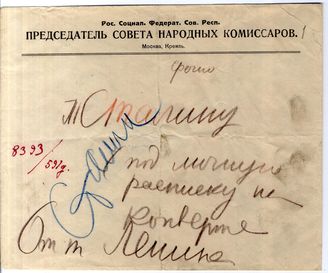 Рос. Социал. Федерат. Сов. Респ.
ПРЕДСЕДАТЕЛЬ СОВЕТА НАРОДНЫХ КОМИССАРОВ.
Москва, Кремль.
фото
т Сталину
8393
/591д.
Сталин
под личную
расписку на
конверте
От т Ленина